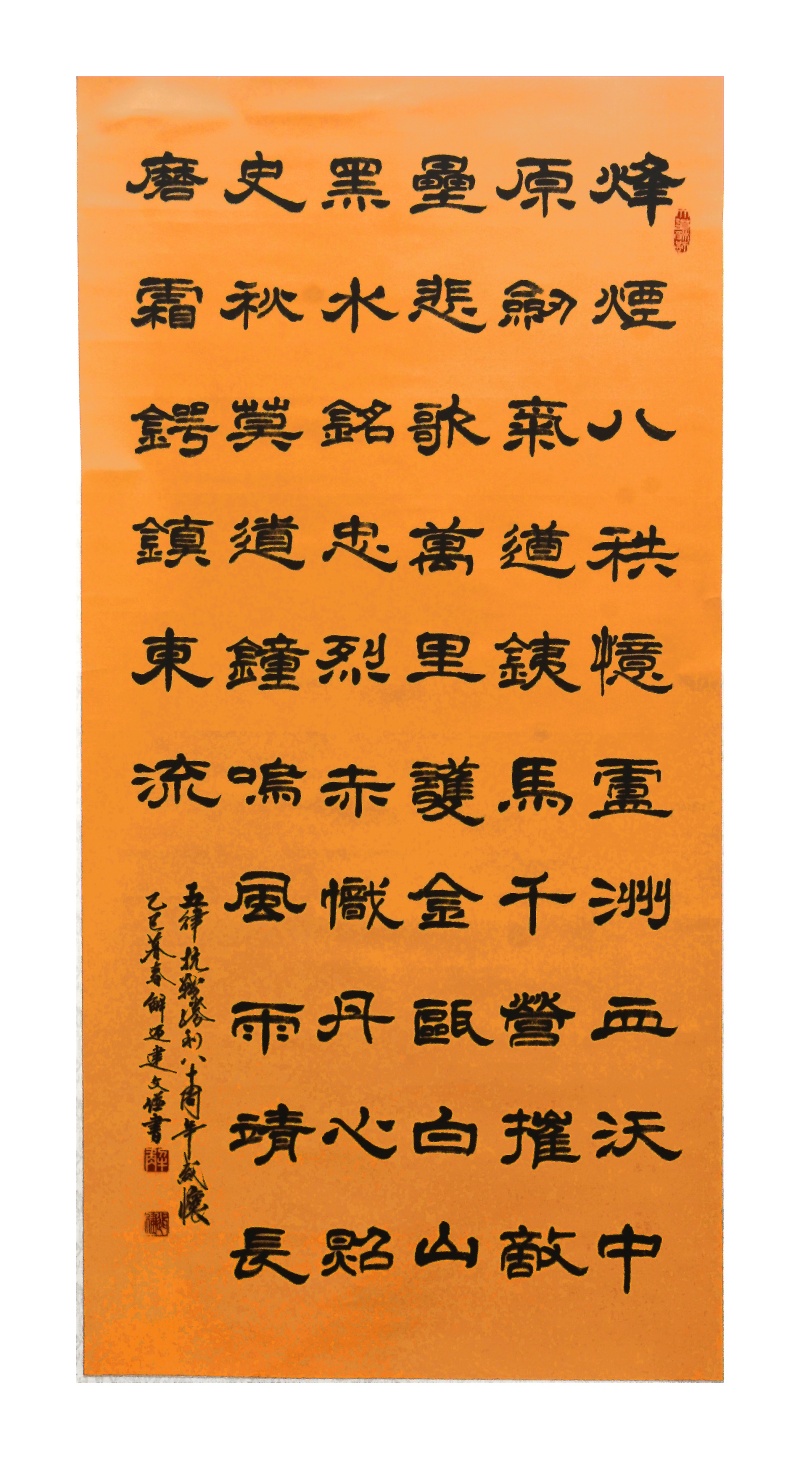 烽煙八秩憶盧洲血沃中
原劒氣遒銕馬千營摧敵
壘悲歌萬里護金甌白山
黑水銘忠烈赤幟丹心照
史秋莫道鐘鳴風雨靖長
磨霜鍔鎮東流
五律抗戰勝利八十周年感懷
乙巳暮春解建文書